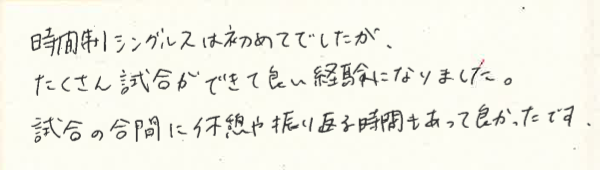 時間制シングルスは初めてでしたが、
たくさん試合ができて良い経験になりました。
試合の合間に休憩や振り返る時間もあって良かったです.